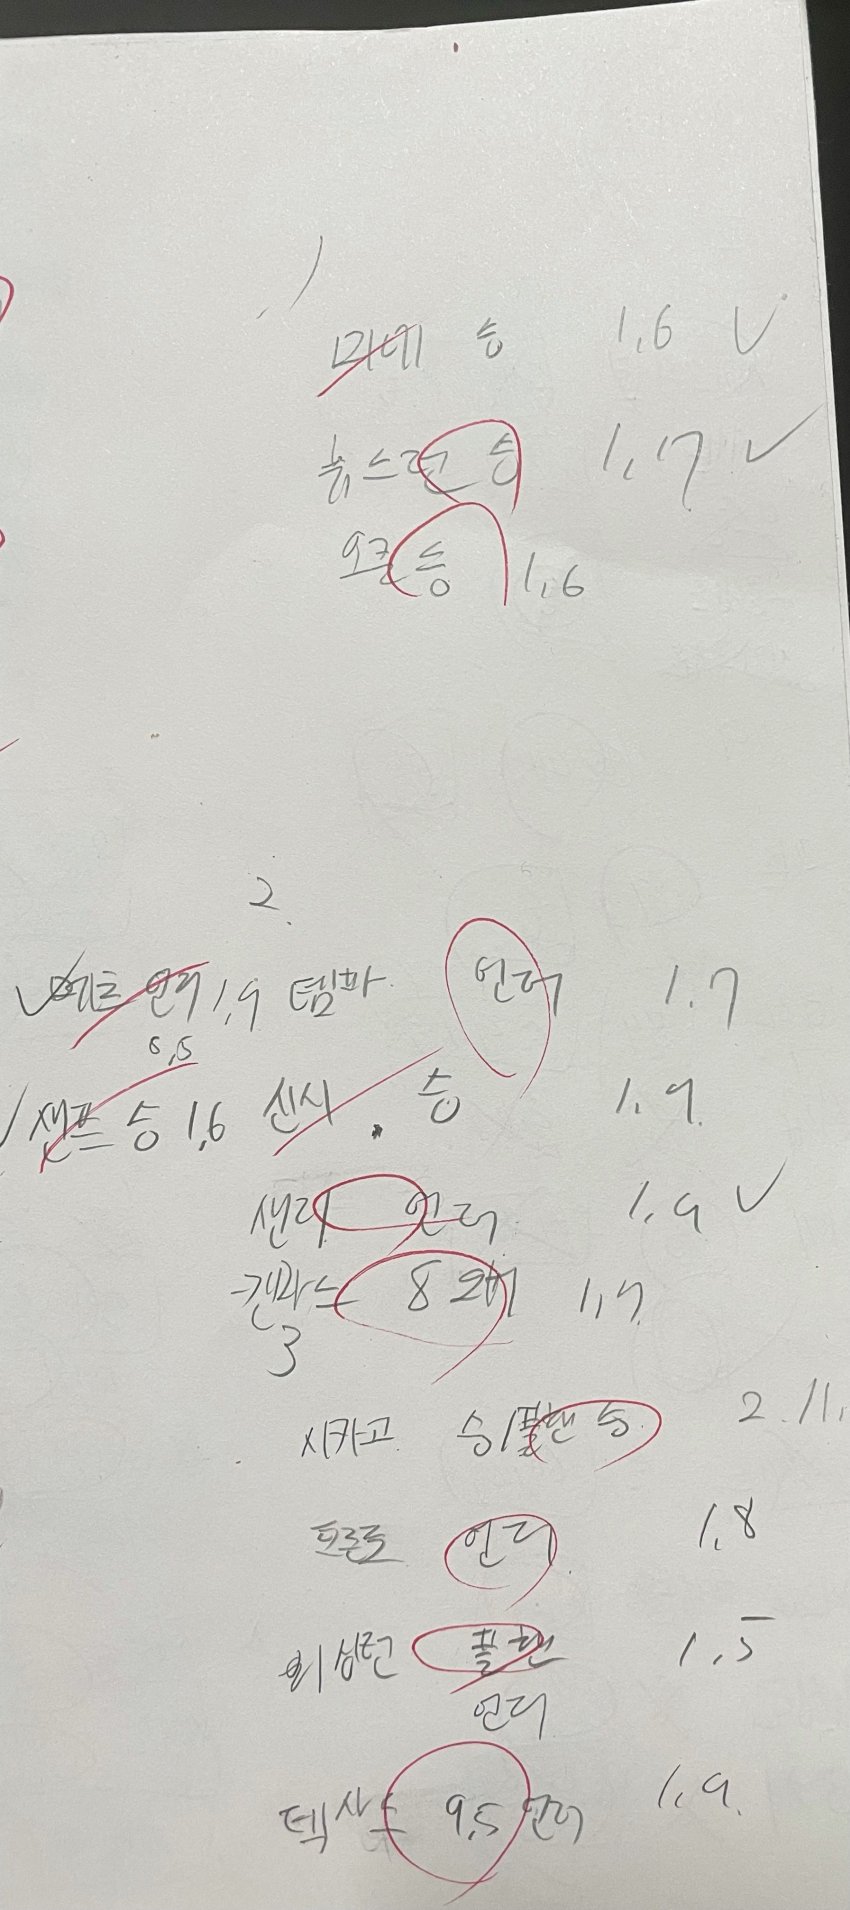 미네 승 1.6 ✓
휴스턴 승 1.17 ✓
오클 승 1.6
2.
✓ 언더 1.9 템파 언더 1.7
6.5
✓ 샌프 승 1.6 신시 승 1.9
샌디 언더 1.9 ✓
캔자스 8 오버 1.7
3
시카고 승/플핸 승 2./1.
토론토 언더 1.8
워싱턴 플핸 1.5
언더
텍사스 9.5 언더 1.9